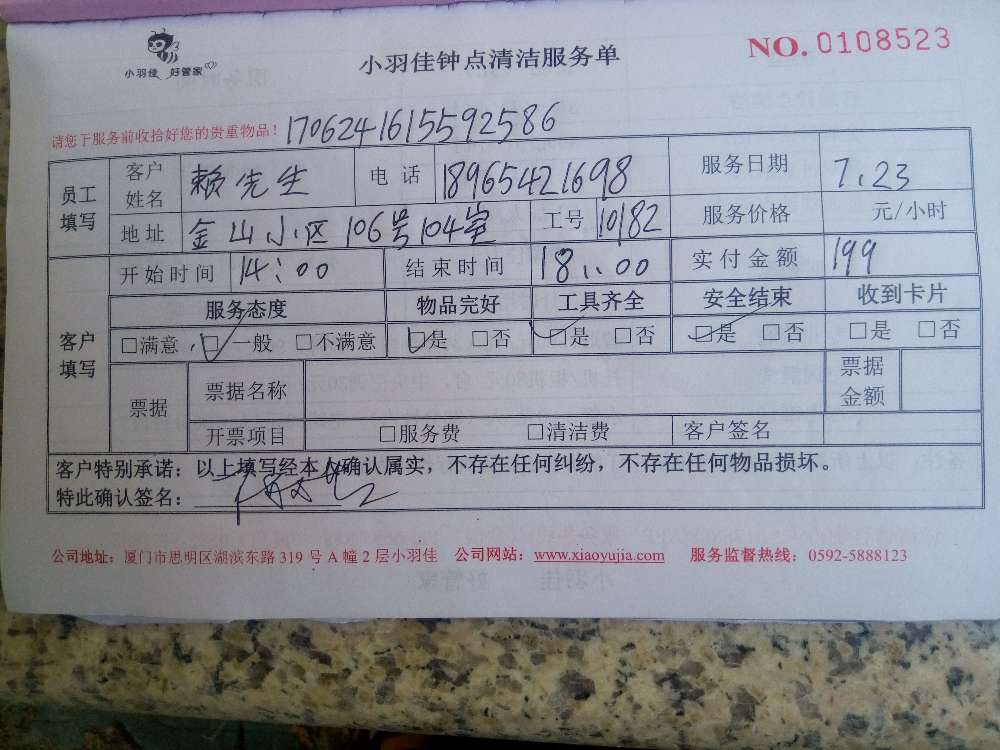 小羽佳 好管家
小羽佳钟点清洁服务单
NO. 0108523
请您于服务前收拾好您的贵重物品! 1706241615592586
员工填写 客户姓名 赖先生 电话 18965421698 服务日期 7.23
地址 金山小区106号104室 工号 10182 服务价格 元/小时
开始时间 14:00 结束时间 18:00 实付金额 199
客户填写 服务态度 物品完好 工具齐全 安全结束 收到卡片
□满意 □一般 □不满意 □是 □否 □是 □否 □是 □否 □是 □否
票据 票据名称 票据金额
开票项目 □服务费 □清洁费 客户签名
客户特别承诺:以上填写经本人确认属实,不存在任何纠纷,不存在任何物品损坏。
特此确认签名:
公司地址:厦门市思明区湖滨东路 319 号 A 幢 2 层小羽佳 公司网站:www.xiaoyujia.com 服务监督热线:0592-5888123